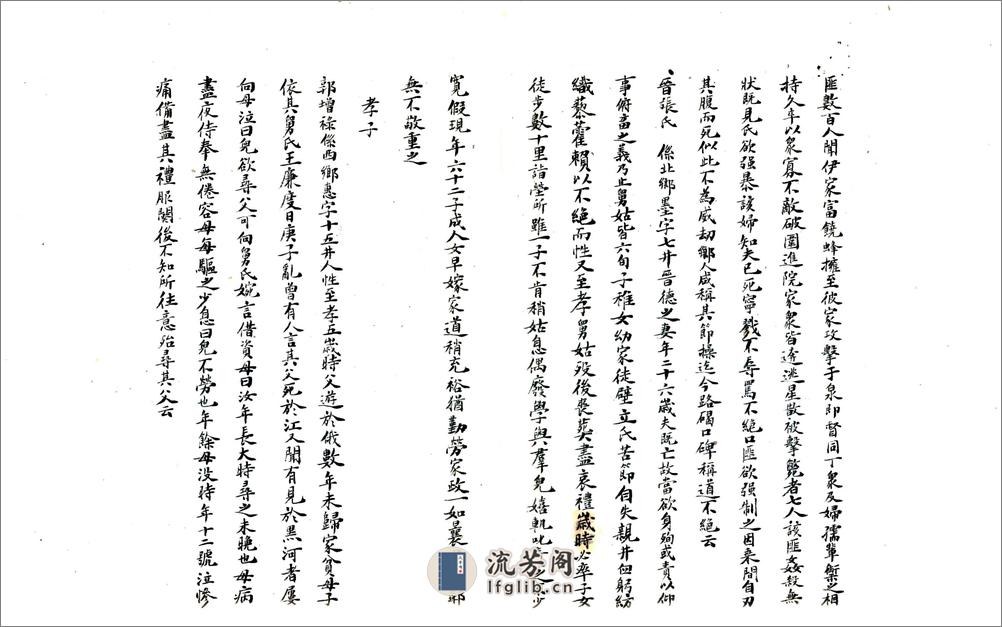 匪數百人聞伊家富饒蜂擁至彼家攻擊于泉即督同丁衆及婦孺輩禦之相
持久卒以衆寡不敵破圍進院家衆皆逃星散被擊斃者七人該匪姦殺無
狀既見氏欲强暴該婦知夫已死寧戮不辱罵不絕口匪欲强制之因乘間自刃
其腹而死似此不為威刧鄉人咸稱其節操迄今路碣口碑稱道不絕云
晉張氏 係北鄉墨字七井晉德之妻年二十六歲夫既亡故當欲身殉或責以仰
事俯畜之義乃止舅姑皆六旬子稚女幼家徒壁立氏苦節自失親井臼躬紡
織藜藿賴以不絕而性又至孝舅姑殁後喪葬盡哀禮歲時必率子女
徒步數十里詣塋所雖一子不肯稍姑息偶廢學與羣兒嬉輒叱少
寛假現年六十二子成人女早嫁家道稍充裕猶勤勞家政一如曩
無不敬重之
孝子
郭增祿係西鄉惠字十五井人性至孝五歲時父遊於俄數年未歸家貧母子
依其舅氏王廉度日庚子亂曾有人言其父死於江又聞有見於黑河者屢
向母泣曰兒欲尋父可向舅氏婉言借資母曰汝年長大時尋之未晚也母病
晝夜侍奉無倦容母每驅之少息曰兒不勞也年餘母没時年十二號泣慘
痛備盡其禮服闋後不知所往意殆尋其父云
流芳阁
lfglib.cn